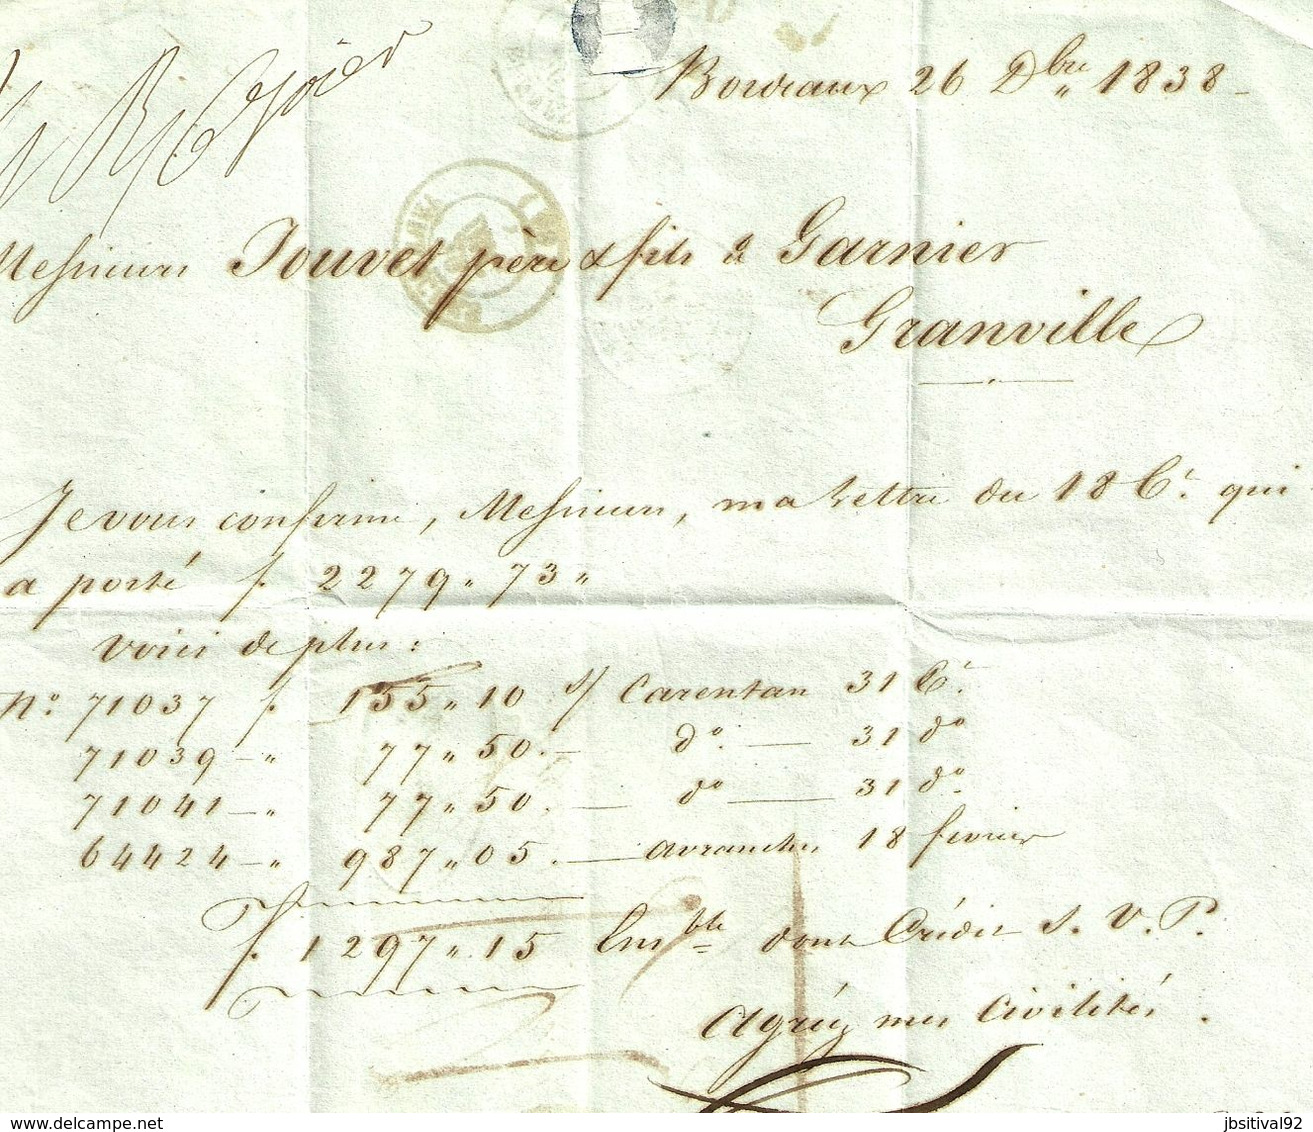 Bordeaux 26 Dbre 1838
Messieurs Jouvet père & fils & Garnier
Granville
Je vous confirme, Messieurs, ma lettre du 18 Ct. qui
a porté f. 2279 " 73 "
Voici de plus :
No. 71037 f. 155 " 10 s/ Carentan 31 Ct.
71039 — " 77 " 50. — do. — 31 do
71041 — " 77 " 50. — do — 31 do.
64424 — " 987 " 05. — avranches 18 fevrier
f. 1297 " 15 Emble dont Crédit S. V. P.
Agréez mes Civilités.
delcampe.net
jbsitival92